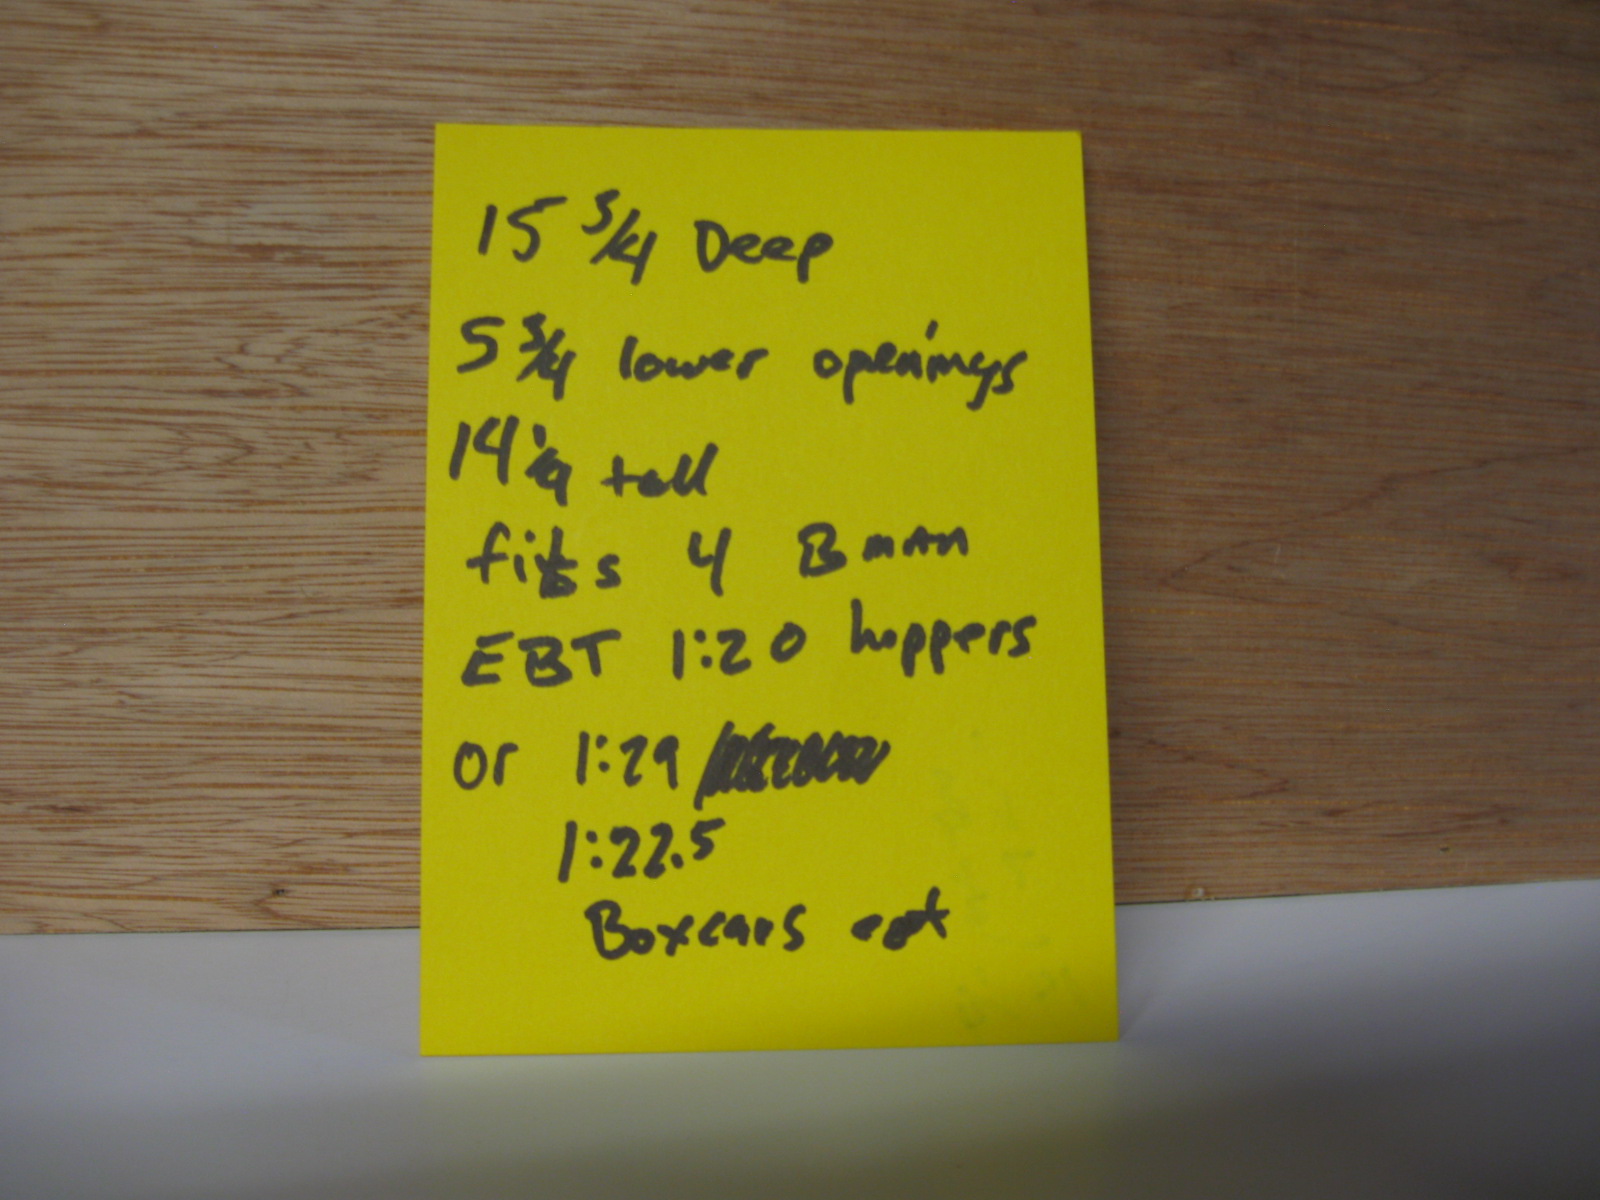 15 3/4 Deep
5 3/4 lower openings
14 1/4 tall
fits 4 Bman
EBT 1:20 hoppers
or 1:29
1:22.5
Boxcars